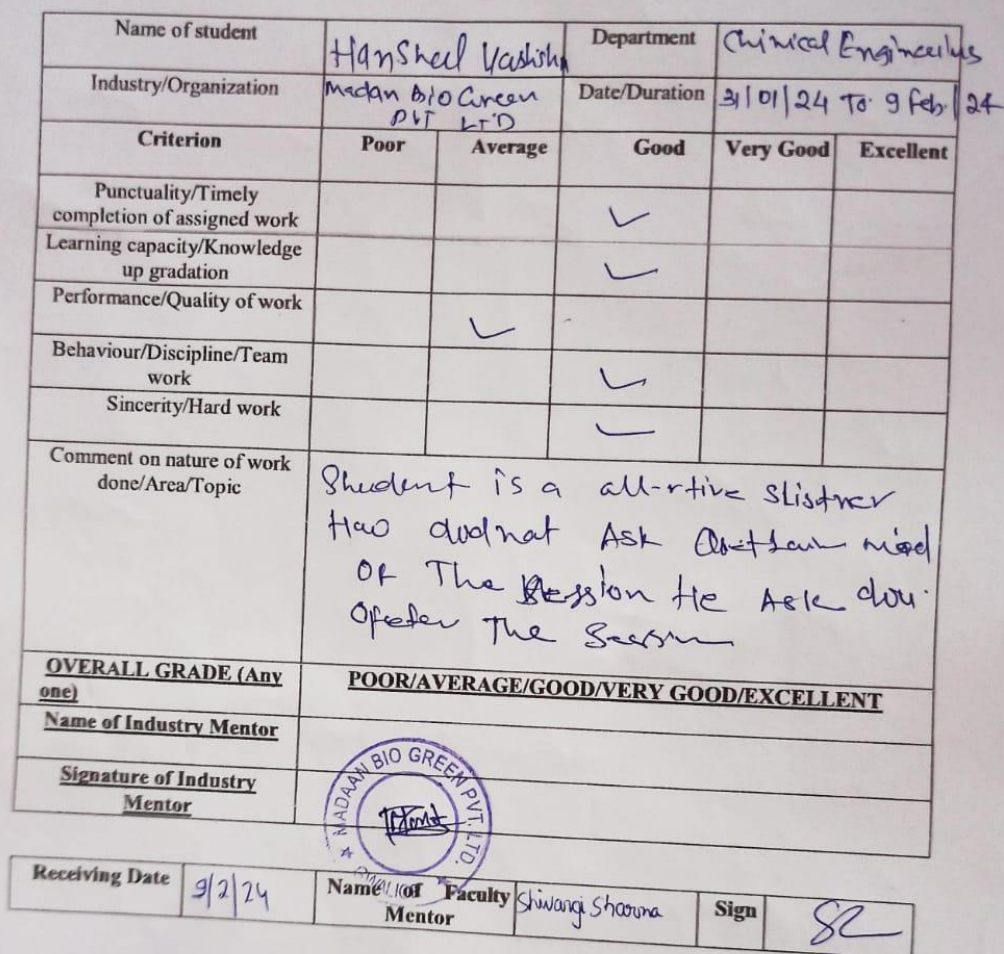 Name of student Hansheel Vashishn Department Chimical Engineerlus
Industry/Organization Madan Bio Green PVT LTD Date/Duration 31/01/24 To 9 Feb/24
Criterion Poor Average Good Very Good Excellent
Punctuality/Timely
completion of assigned work
Learning capacity/Knowledge
up gradation
Performance/Quality of work
Behaviour/Discipline/Team
work
Sincerity/Hard work
Comment on nature of work
done/Area/Topic
Student is a
ASK
OF The Session He Ask
The Session
OVERALL GRADE (Any
one)
POOR/AVERAGE/GOOD/VERY GOOD/EXCELLENT
Name of Industry Mentor
Signature of Industry
Mentor
MADAAN BIO GREEN PVT. LTD.
Receiving Date 9/2/24 Name of Faculty
Mentor Shivangi Sharma Sign